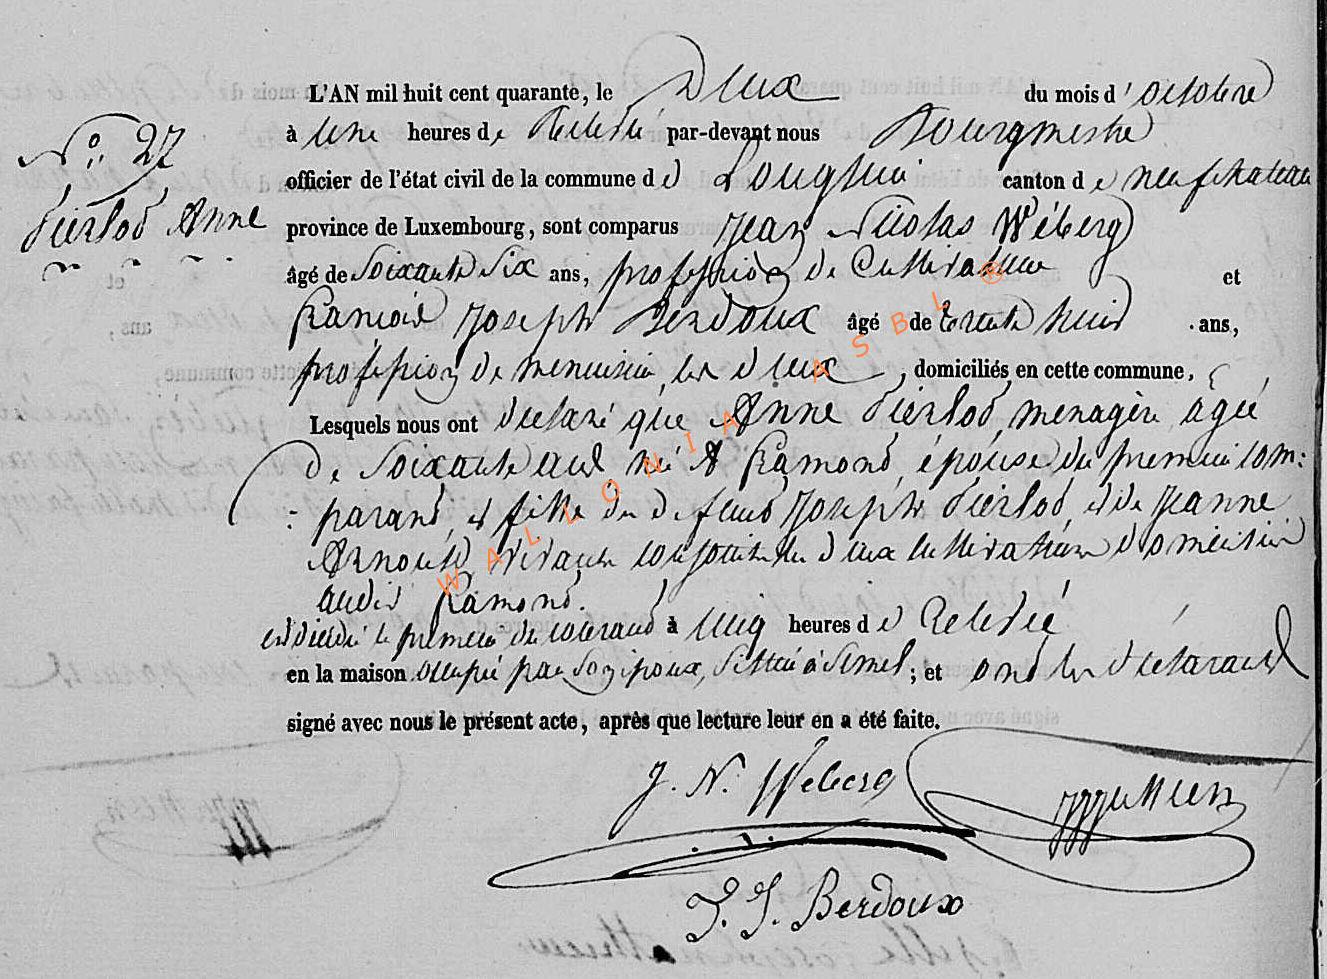 L'AN mil huit cent quarante, le Deux du mois d'octobre
No. 27
à une heures de Relevée par-devant nous Bourgmestre
officier de l'état civil de la commune de Longlier canton de neufchateau
Pierlot Anne
province de Luxembourg, sont comparus Jean Nicolas Wéberg
âgé de Soixante Six ans, profession de Cultivateur et
francois Joseph Berdoux âgé de trente huit ans,
profession de menuisier, les deux, domiciliés en cette commune,
Lesquels nous ont declaré que Anne Pierlot, menagère, agée
de Soixante ans, né à Ramont, épouse du premier com:
:parant, et fille du defunt Joseph Pierlot, et de Jeanne
Arnould, vivante conjointe deux cultivateurs domicilié
audit Ramont.
est décédé le premier du courant à cinq heures de Relevée
en la maison occupée par son époux, sittué à Semel; et ont les declarants
signé avec nous le présent acte, après que lecture leur en a été faite.
J. N. Weberg
F. J. Berdoux
WALLONIA ASBL ®